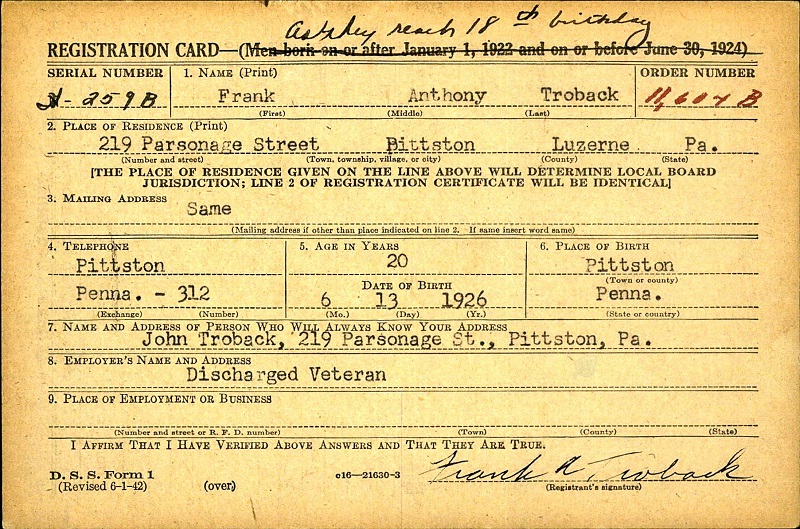 as they reach 18th birthday
REGISTRATION CARD—(Men born on or after January 1, 1922 and on or before June 30, 1924)
SERIAL NUMBER 1. NAME (Print) ORDER NUMBER
259B Frank Anthony Troback 11,604 B
(First) (Middle) (Last)
2. PLACE OF RESIDENCE (Print)
219 Parsonage Street Pittston Luzerne Pa.
(Number and street) (Town, township, village, or city) (County) (State)
[THE PLACE OF RESIDENCE GIVEN ON THE LINE ABOVE WILL DETERMINE LOCAL BOARD
JURISDICTION; LINE 2 OF REGISTRATION CERTIFICATE WILL BE IDENTICAL]
3. MAILING ADDRESS
Same
(Mailing address if other than place indicated on line 2. If same insert word same)
4. TELEPHONE 5. AGE IN YEARS 6. PLACE OF BIRTH
Pittston 20 Pittston
(Town or county)
DATE OF BIRTH
Penna. - 312 6 13 1926 Penna.
(Exchange) (Number) (Mo.) (Day) (Yr.) (State or country)
7. NAME AND ADDRESS OF PERSON WHO WILL ALWAYS KNOW YOUR ADDRESS
John Troback, 219 Parsonage St., Pittston, Pa.
8. EMPLOYER'S NAME AND ADDRESS
Discharged Veteran
9. PLACE OF EMPLOYMENT OR BUSINESS
(Number and street or R. F. D. number) (Town) (County) (State)
I AFFIRM THAT I HAVE VERIFIED ABOVE ANSWERS AND THAT THEY ARE TRUE.
D. S. S. Form 1
(Revised 6-1-42) (over) c16—21630-3 Frank A Troback
(Registrant's signature)